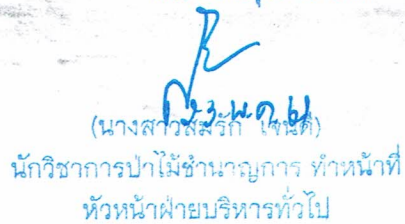 (นางสาวสมรัก ใจนดี)
นักวิชาการป่าไม้ชำนาญการ ทำหน้าที่
หัวหน้าฝ่ายบริหารทั่วไป